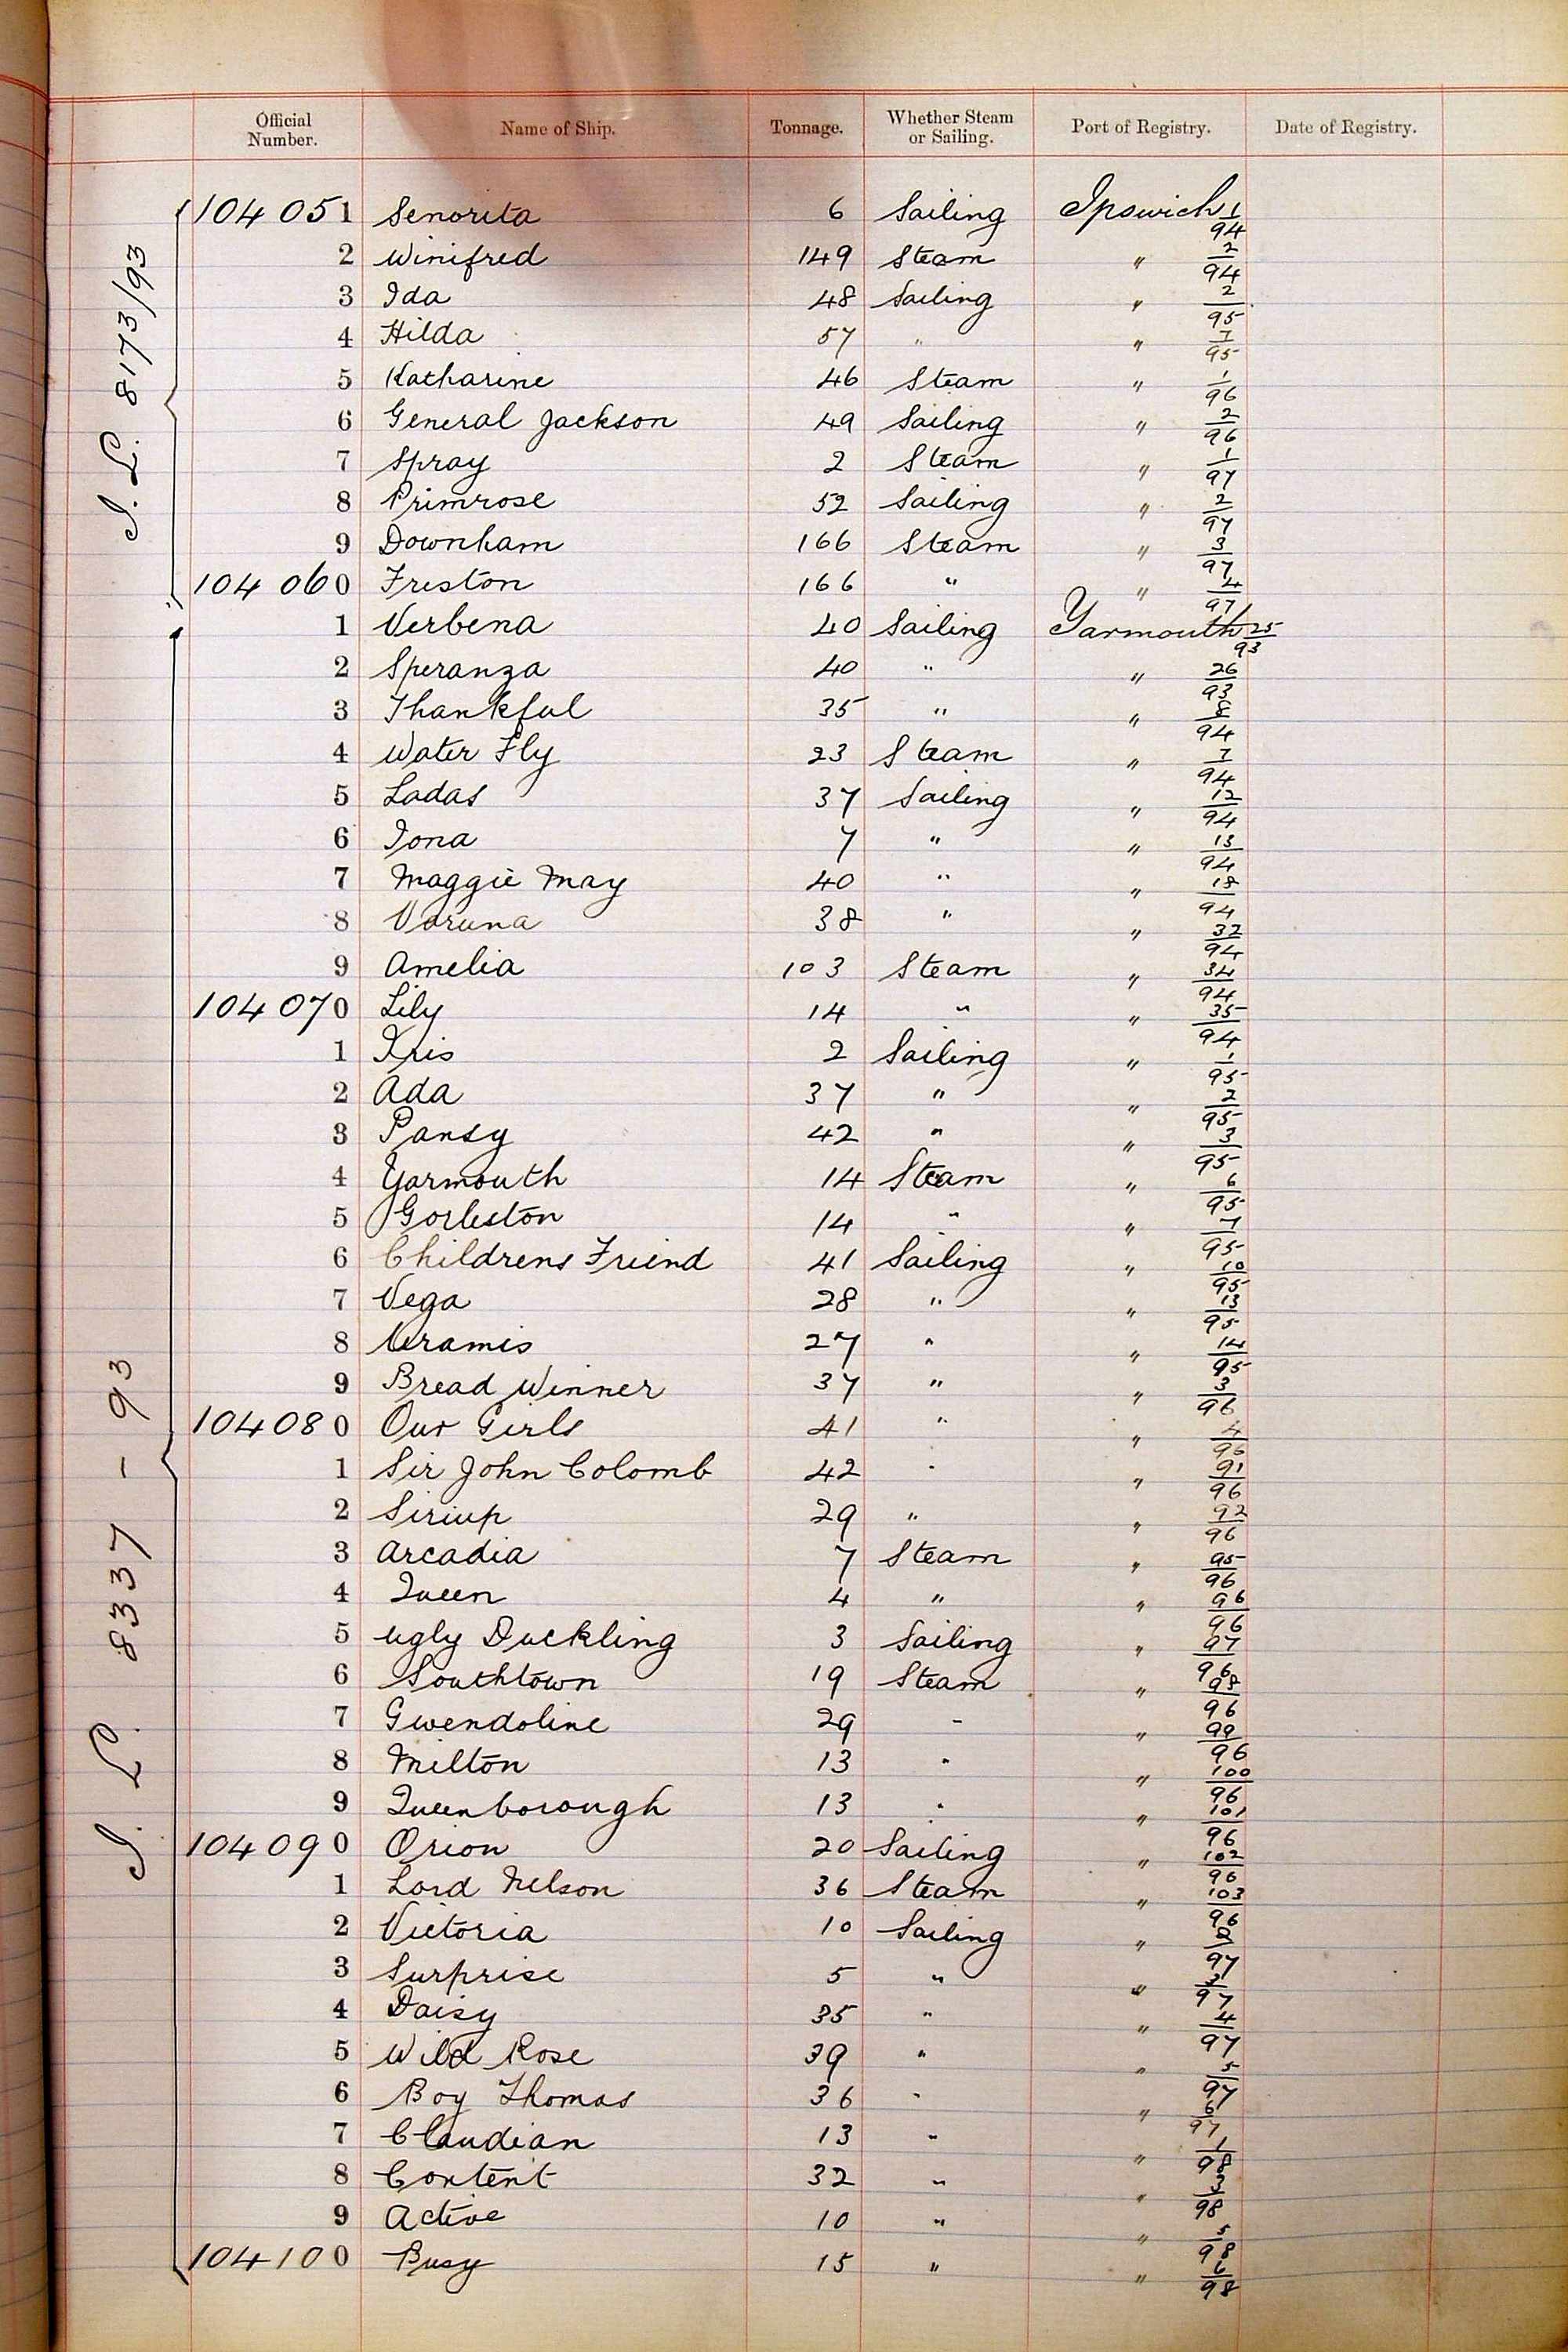 Official Number. Name of Ship. Tonnage. Whether Steam or Sailing. Port of Registry. Date of Registry.
I. L. 8173/93
104051 Senorita 6 Sailing Ipswich 1/94
2 Winifred 149 Steam " 2/94
3 Ida 48 Sailing " 2/95
4 Hilda 57 " " 7/95
5 Katharine 46 Steam " 1/96
6 General Jackson 49 Sailing " 2/96
7 Spray 2 Steam " 1/97
8 Primrose 52 Sailing " 2/97
9 Downham 166 Steam " 3/97
104060 Freston 166 " " 4/97
I. L. 8337 - 93
1 Verbena 40 Sailing Yarmouth 25/93
2 Speranza 40 " " 26/93
3 Thankful 35 " " 8/94
4 Water Fly 23 Steam " 7/94
5 Ladas 37 Sailing " 12/94
6 Iona 7 " " 13/94
7 Maggie May 40 " " 18/94
8 Varuna 38 " " 32/94
9 Amelia 103 Steam " 34/94
104070 Lily 14 " " 35/94
1 Kris 2 Sailing " 1/95
2 Ada 37 " " 2/95
3 Pansy 42 " " 3/95
4 Yarmouth 14 Steam " 6/95
5 Gorleston 14 " " 7/95
6 Childrens Friend 41 Sailing " 10/95
7 Vega 28 " " 13/95
8 27 " " 14/95
9 Bread Winner 37 " " 3/96
104080 Our Girls 41 " " 4/96
1 Sir John Colomb 42 " " 91/96
2 Siriup 29 " " 92/96
3 Arcadia 7 Steam " 95/96
4 Queen 4 " " 96/96
5 Ugly Duckling 3 Sailing " 97/96
6 Southtown 19 Steam " 98/96
7 Gwendoline 29 " " 99/96
8 Milton 13 " " 100/96
9 Queenborough 13 " " 101/96
104090 Orion 20 Sailing " 102/96
1 Lord Nelson 36 Steam " 103/96
2 Victoria 10 Sailing " 2/97
3 Surprise 5 " " 3/97
4 Daisy 35 " " 4/97
5 Wild Rose 39 " " 5/97
6 Boy Thomas 36 " " 6/97
7 Claudian 13 " " 1/98
8 Content 32 " " 3/98
9 Active 10 " " 5/98
104100 Busy 15 " " 6/98